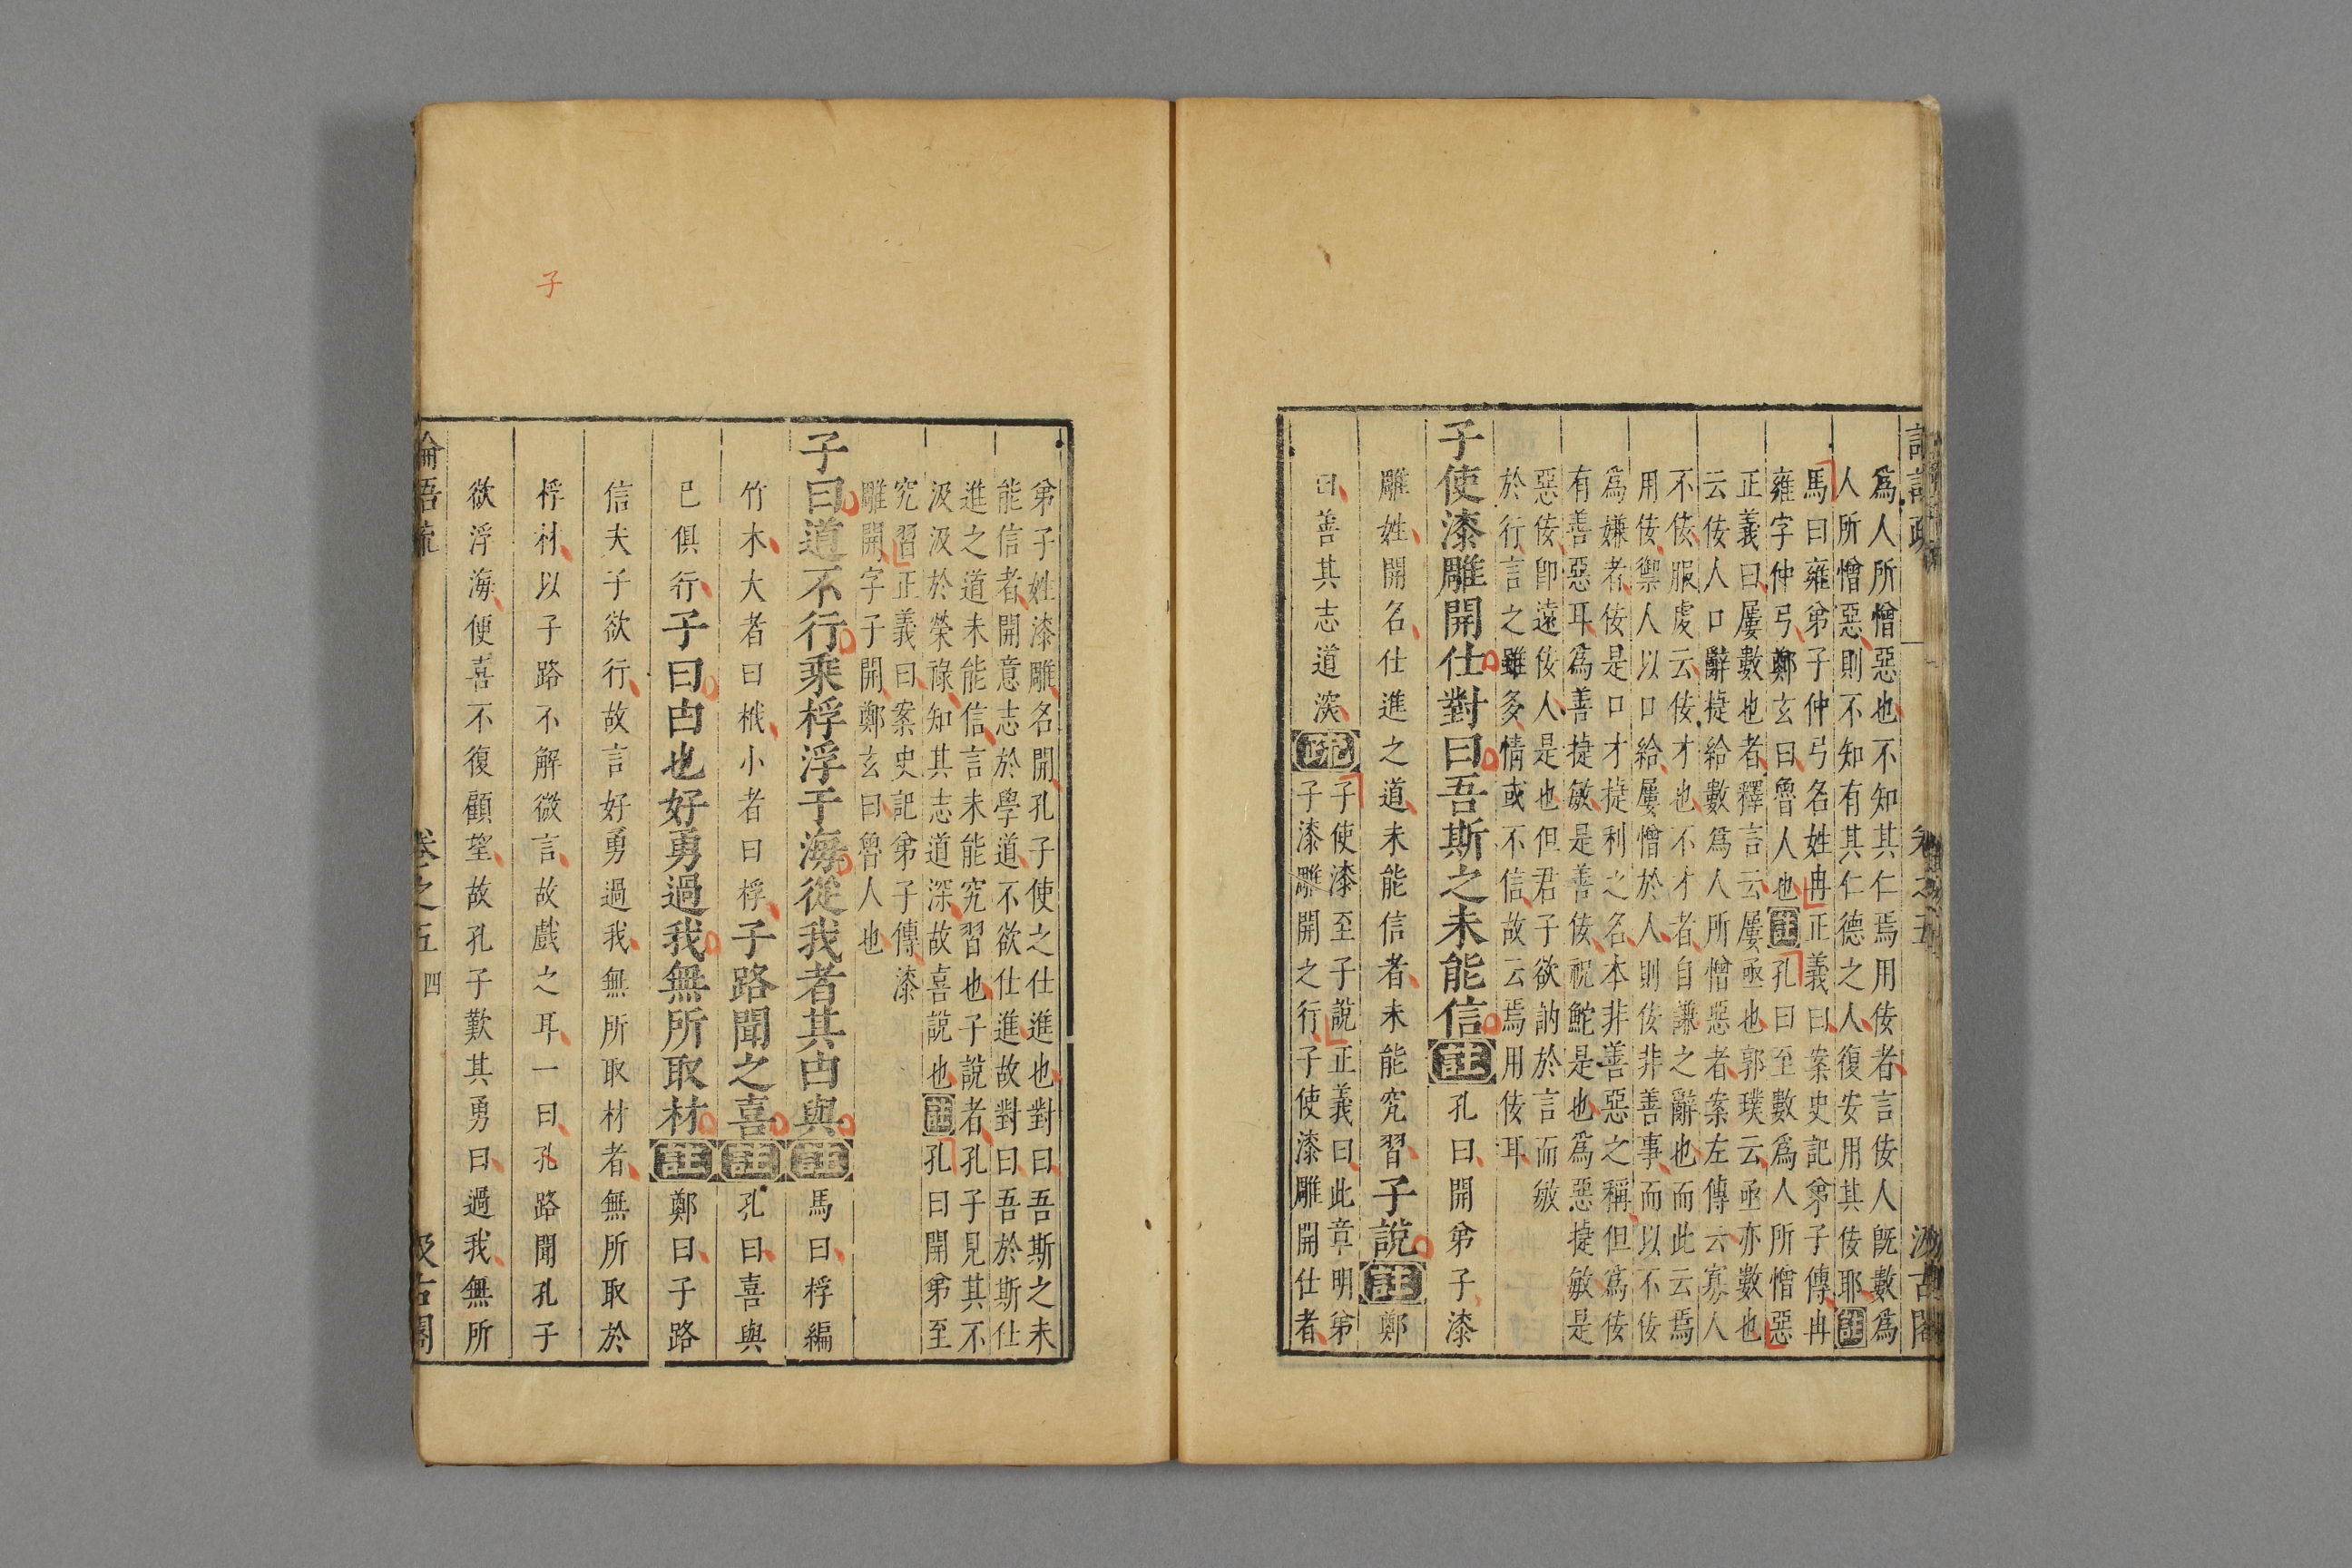 爲人所憎惡也不知其仁焉用佞者言佞人旣數爲
人所憎惡則不知有其仁德之人復安用其佞耶註
馬曰雍弟子仲弓名姓冉正義曰案史記弟子傳冉
雍字仲弓鄭玄曰魯人也註孔曰至數爲人所憎惡
正義曰屢數也者釋言云屢亟也郭璞云亟亦數也
云佞人口辭捷給數爲人所憎惡者案左傳云寡人
不佞服虔云佞才也不才者自謙之辭也而此云焉
用佞禦人以口給屢憎於人則佞非善事而以不佞
爲嫌者佞是口才捷利之名本非善惡之稱但爲佞
有善惡耳爲善捷敏是善佞祝鮀是也爲惡捷敏是
惡佞卽遠佞人是也但君子欲訥於言而敏
於行言之雖多情或不信故云焉用佞耳
子使漆雕開仕對曰吾斯之未能信註孔曰開弟子漆
雕姓開名仕進之道未能信者未能究習子說註鄭
曰善其志道深疏子使漆至子說正義曰此章明弟
子漆雕開之行子使漆雕開仕者
弟子姓漆雕名開孔子使之仕進也對曰吾斯之未
能信者開意志於學道不欲仕進故對曰吾於斯仕
進之道未能信言未能究習也子說者孔子見其不
汲汲於榮祿知其志道深故喜說也註孔曰開弟至
究習正義曰案史記弟子傳漆
雕開字子開鄭玄曰魯人也
子曰道不行乘桴浮于海從我者其由與註馬曰桴編
竹木大者曰栰小者曰桴子路聞之喜註孔曰喜與
己俱行子曰由也好勇過我無所取材註鄭曰子路
信夫子欲行故言好勇過我無所取材者無所取於
桴材以子路不解微言故戲之耳一曰孔路聞孔子
欲浮海便喜不復顧望故孔子歎其勇曰過我無所
論語疏 卷之五 四 汲古閣
子